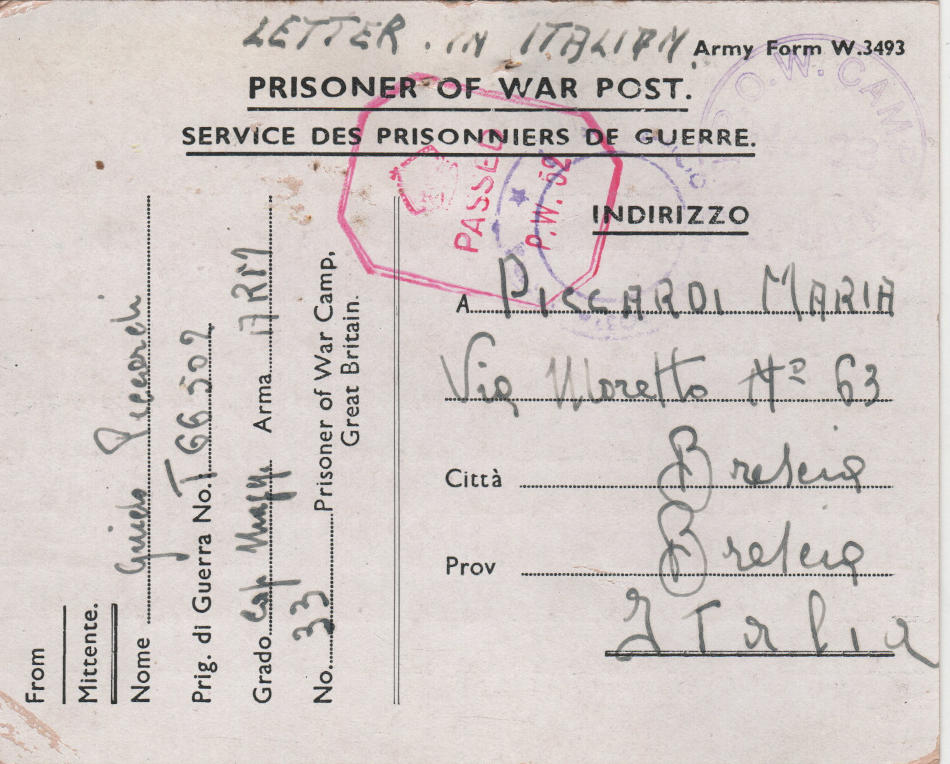 LETTER . IN ITALIAN.
Army Form W.3493
PRISONER OF WAR POST.
SERVICE DES PRISONNIERS DE GUERRE.
P.O.W. CAM
PASSED
P.W. 52
INDIRIZZO
A PICCARDI MARIA
Via Moretto No 63
Città Brescia
Prov Brescia
Italia
From
Mittente.
Nome Guido Piccardi
Prig. di Guerra No. T66502
Grado Cap Magg Arma ARM
No. 33 Prisoner of War Camp,
Great Britain.